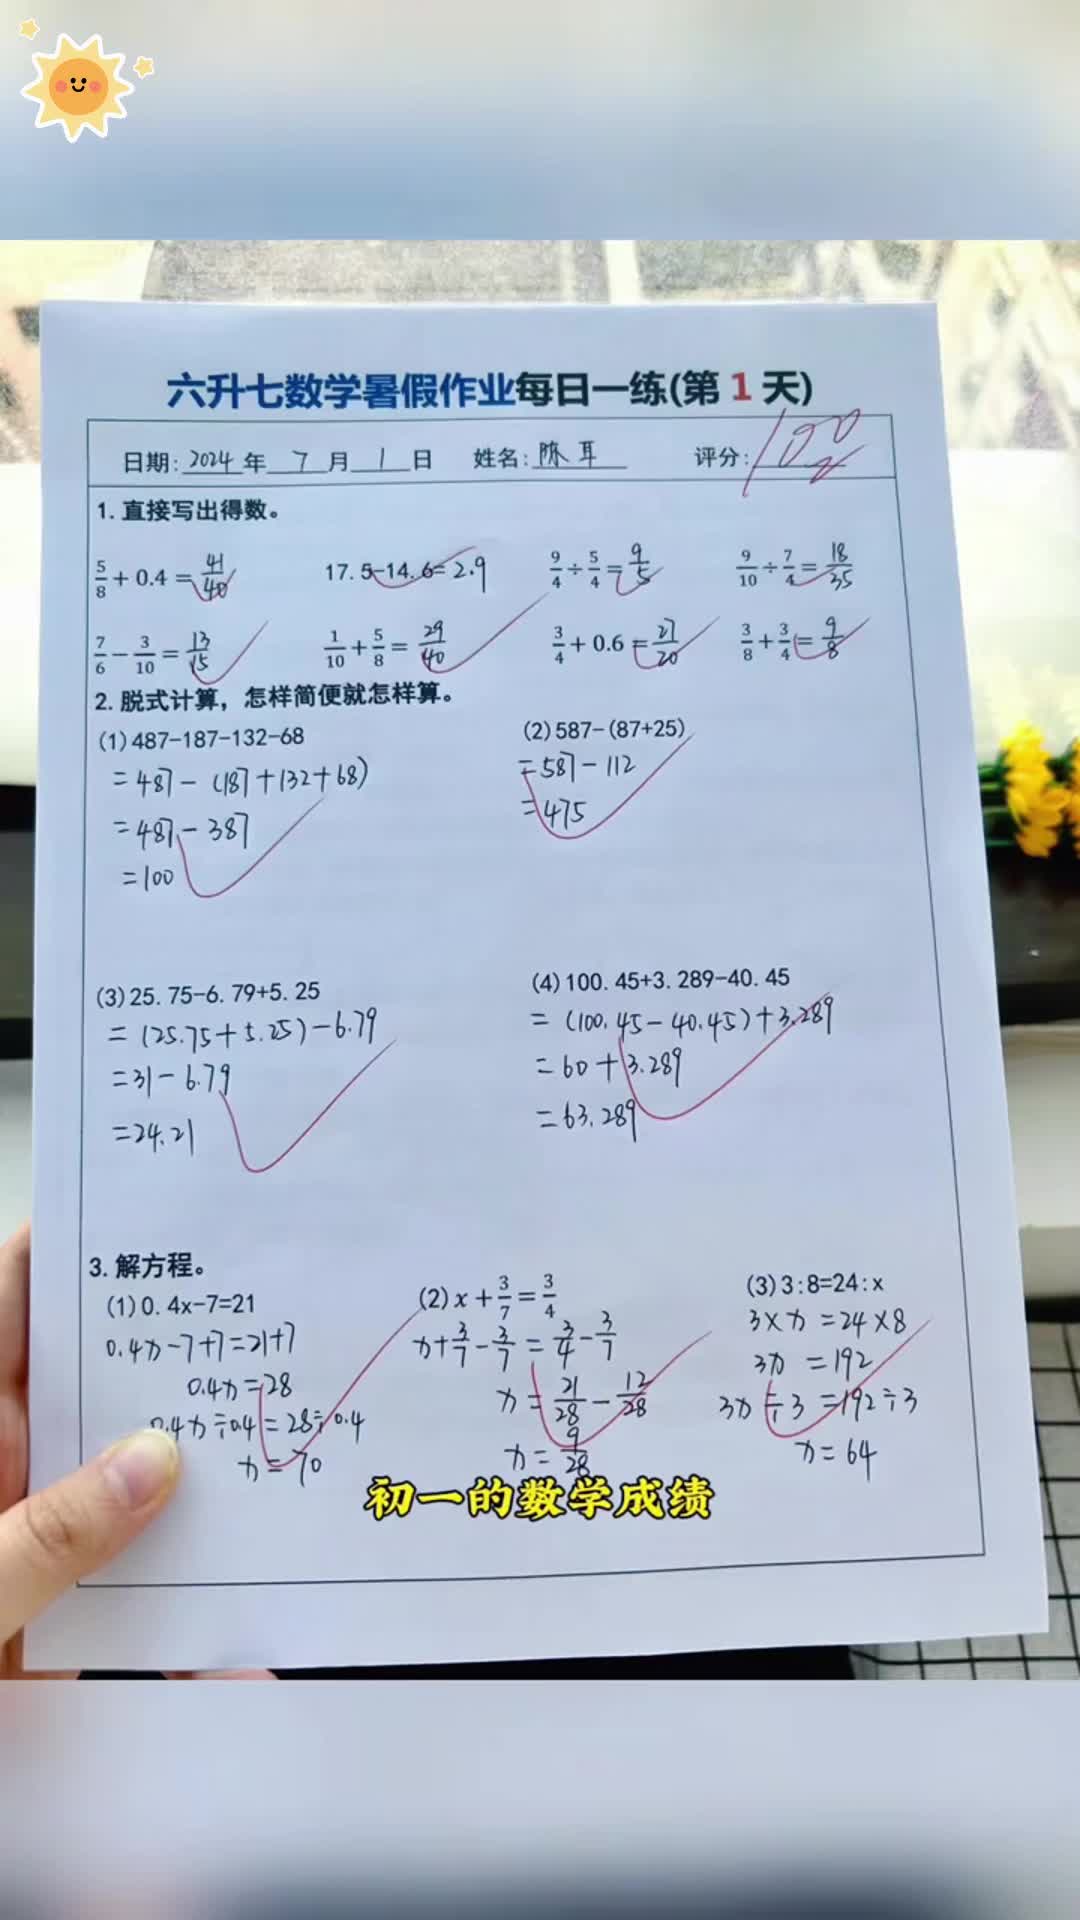 六升七数学暑假作业每日一练(第 1 天)
日期: 2024 年 7 月 1 日 姓名: 陈耳 评分: 100
1. 直接写出得数。
5/8 + 0.4 = 41/40 17.5-14.6= 2.9 9/4 ÷ 5/4 = 9/5 9/10 ÷ 7/4 = 18/35
7/6 − 3/10 = 13/15 1/10 + 5/8 = 29/40 3/4 + 0.6 = 27/20 3/8 + 3/4 = 9/8
2. 脱式计算，怎样简便就怎样算。
(1)487-187-132-68
= 487 - (187+132+68)
= 487 - 387
= 100
(2)587-(87+25)
= 587 - 112
= 475
(3)25.75-6.79+5.25
= (25.75+5.25) - 6.79
= 31 - 6.79
= 24.21
(4)100.45+3.289-40.45
= (100.45-40.45)+3.289
= 60+3.289
= 63.289
3. 解方程。
(1)0.4x-7=21
0.4x-7+7=21+7
0.4x=28
0.4x÷0.4=28÷0.4
x=70
(2) x + 3/7 = 3/4
x + 3/7 - 3/7 = 3/4 - 3/7
x = 21/28 - 12/28
x = 9/28
(3)3:8=24:x
3×x =24×8
3x =192
3x÷3 =192÷3
x=64
初一的数学成绩